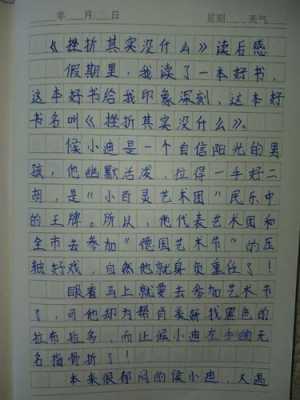 年 月 日 星期 天气
《挫折其实没什么》读后感
假期里,我读了一本好书,
这本好书给我印象深刻,这本好
书名叫《挫折其实没什么》。
侯小迪是一个自信阳光的男
孩,他幽默活泼,拉得一手好二
胡,是“小百灵艺术团”民乐中
的王牌。所以,他代表艺术团和
全市去参加“德国艺术节”的压
轴好戏,自然他就身负重任了!
眼看马上就要去参加艺术节
了,可他却为帮贝麦解救黑色的
拉布拉多,而让侯小迪左手的无
名指骨折了!
本来很郁闷的侯小迪,又遇